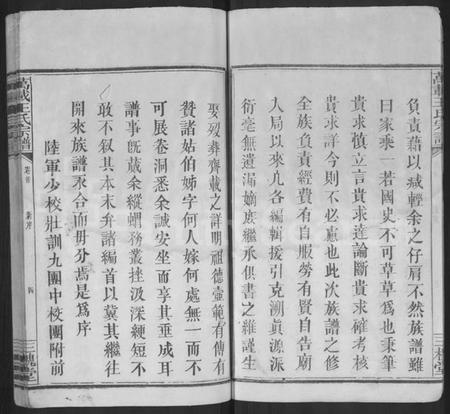 萬載王氏宗譜
三槐堂
負責藉以减輕余之仔肩不然族譜雖
曰家乘一若國史不可草草為也秉筆
貴求慎立言貴求達論斷貴求確考核
貴求詳今則不必慮也此次族譜之修
全族負責經費有自服勞有賢自告廟
入局以來凡各編輯援引克溯眞源派
衍毫無遺漏嫡庶繼承俱書之雖謹生
娶殁葬齊載之詳明祖德壼範有傳有
贊諸姑伯姊字何人嫁何處無一而不
可展卷洞悉余誠安坐而享其垂成耳
譜事旣蕆余縱蝟務叢挫汲深綆短不
敢不叙其本末弁諸編首以冀其繼往
開來族譜永合而毋分焉是為序
陸軍少校壯訓九團中校團附前
萬載王氏宗譜
卷首
序
四
三槐堂